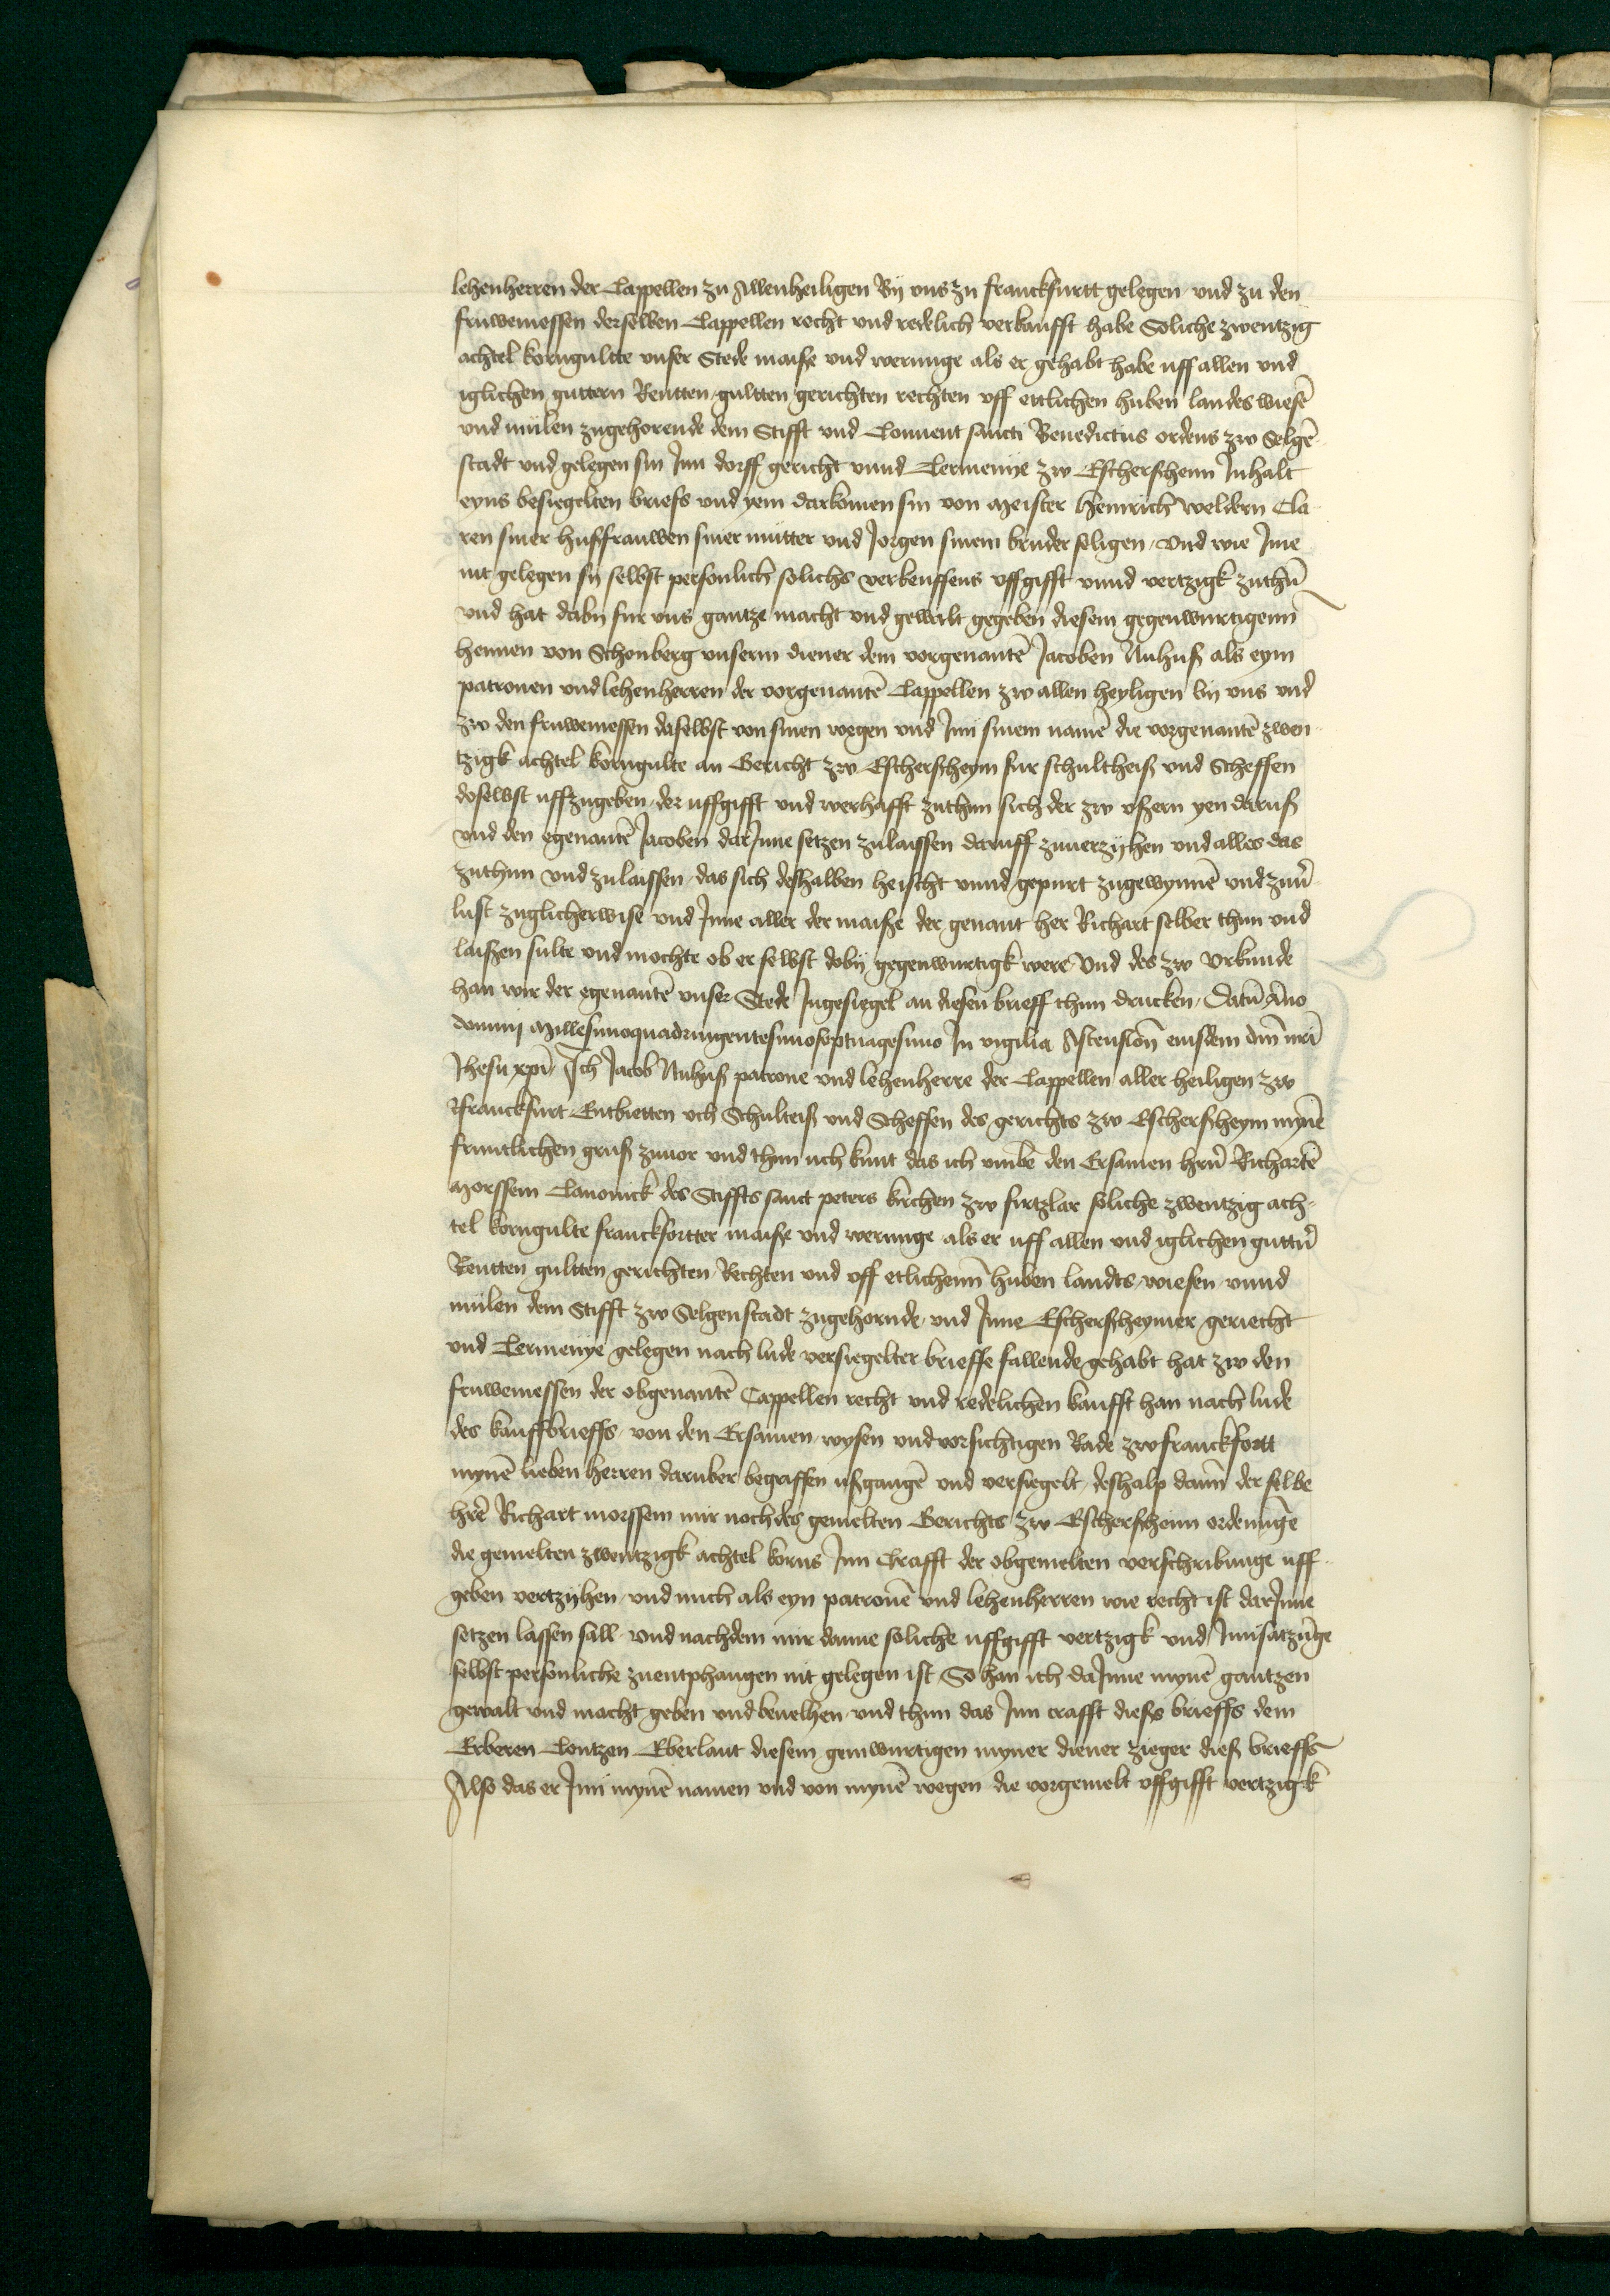 lehenherren der Cappellen zu Allenheiligen By vns zu franckfurtt gelegen vnd zu den
fruwemessen derselben Cappellen recht vnd redelich verkaufft habe Soliche zwentzig
achtel korngultte vnser Stede maiße vnd werunge als er gehabt habe uff allen vnd
iglichen guttern Rentten gultten gerichten rechten vff ettlichen huben landes wiesē
vnd mülen zugehorende dem Stifft vnd Conuent sancti Benedictus ordens zw Selgē
stadt vnd gelegen sin Inn dorff gericht vnnd Termenye zw Escherßhenn Inhalt
eyns besiegelten briefs vnd yem darkomen sin von Meister Heinrich Weldern Cla
ren siner hußfrauwen siner mutter vnd Jorgen sinem bruder seligen / Vnd wie Ime
nit gelegen sy selbst personlich solichs verkeuffens vffgifft vnnd vertzigk zuthū
vnd hat daby fur vns gantze macht vnd gewalt gegeben diesem gegenwurtigenn
hennen von Schonberg vnserm diener dem vorgenantē Jacoben Nuhuß als eym
patronen vnd lehenherren der vorgenantē Cappellen zw allen heyligen by vns vnd
zw den fruwemessen daselbst von sinen wegen vnd Inn sinem namē die vorgenantē zwen
tzigk achtel korngulte an Gericht zw Escherßheym fur schultheiß vnd Scheffen
doselbst uffzugeben / der uffgifft vnd werhafft zuthun sich der zw ußern yen daruß
vnd den egenantē Jacoben darJnne setzen zulaissen daruff zuuerzyhen vnd alles das
zuthun vnd zulaissen / das sich deßhalben heischt vnnd gepurt zugewynnē vnd zuu̓
lust zuglicherwise vnd Inne aller der maiße der genant her Richart selber thun vnd
laißen sulte vnd mochte ob er selbst doby gegenwurtigk were / Vnd des zw Vrkunde
han wir der egenantē vnser Stede Ingesiegel an diesen brieff thun drucken / Datū Āno
domini Millesimoquadringentesimoseptuagesimo In vigilia Ascensionī eiusdem dn̄i nr̄i
Jhesu xp̄i / Ich Jacob Nuhuß patrone vnd lehenherre der Cappellen aller heiligen zw
franckfurt Entbietten uch Schulteiß vnd Scheffen des gerichts zw Escherßheym mynē
fruntlichen gruß zuuor vnd thun uch kunt das ich vmbe den Ersamen hrn̄ Richartē
Morssem Canonick des Stiffts sanct peters kirchen zw firtzlar soliche zwentzig ach-
tel korngulte franckfortter maiße vnd werunge als er uff allen vnd iglichen guttn̄
Rentten gultten gerichten Rechten vnd vff etlichenn huben landts wiesen vnnd
mülen dem Stifft zw Selgenstadt zugehornde / vnd Inne Escherßheymer geriecht
vnd Termenye gelegen nach lude versiegelter brieffe fallende gehabt hat zw den
fruwemessen der obgenantē Cappellen recht vnd redelichen kaufft han nach lude
des kauffbrieffs / von den Ersamen / wysen vnd vorsichtigen Rade zw franckfortt
mynē lieben herren daruber begriffen ußgangē vnd versiegelt / deßhalp dann der selbe
hr̄e Richart morssem mir noch des gemelten Gerichts zw Escherßheim ordenūge
die gemelten zwentzigk achtel korns Inn Crafft der obgemelten verschribunge uff
geben vertzyhen / vnd mich als eyn patronē vnd lehenherren wie recht ist darInne
setzen lassen sall / vnd nachdem mir danne soliche uffgifft vertzigk vnd Innsatzūge
selbst personliche zuentphangen nit gelegen ist / So han ich daInne mynē gantzen
gewalt vnd macht geben vnd beuelhen / vnd thun das Inn crafft dieß brieffs dem
Erberen Contzen Eberlant diesem geinwurtigen myner diener zieger dieß brieffs
Also das er Inn mynē namen vnd von mynē wegen die vorgemelt vffgifft vertzigk